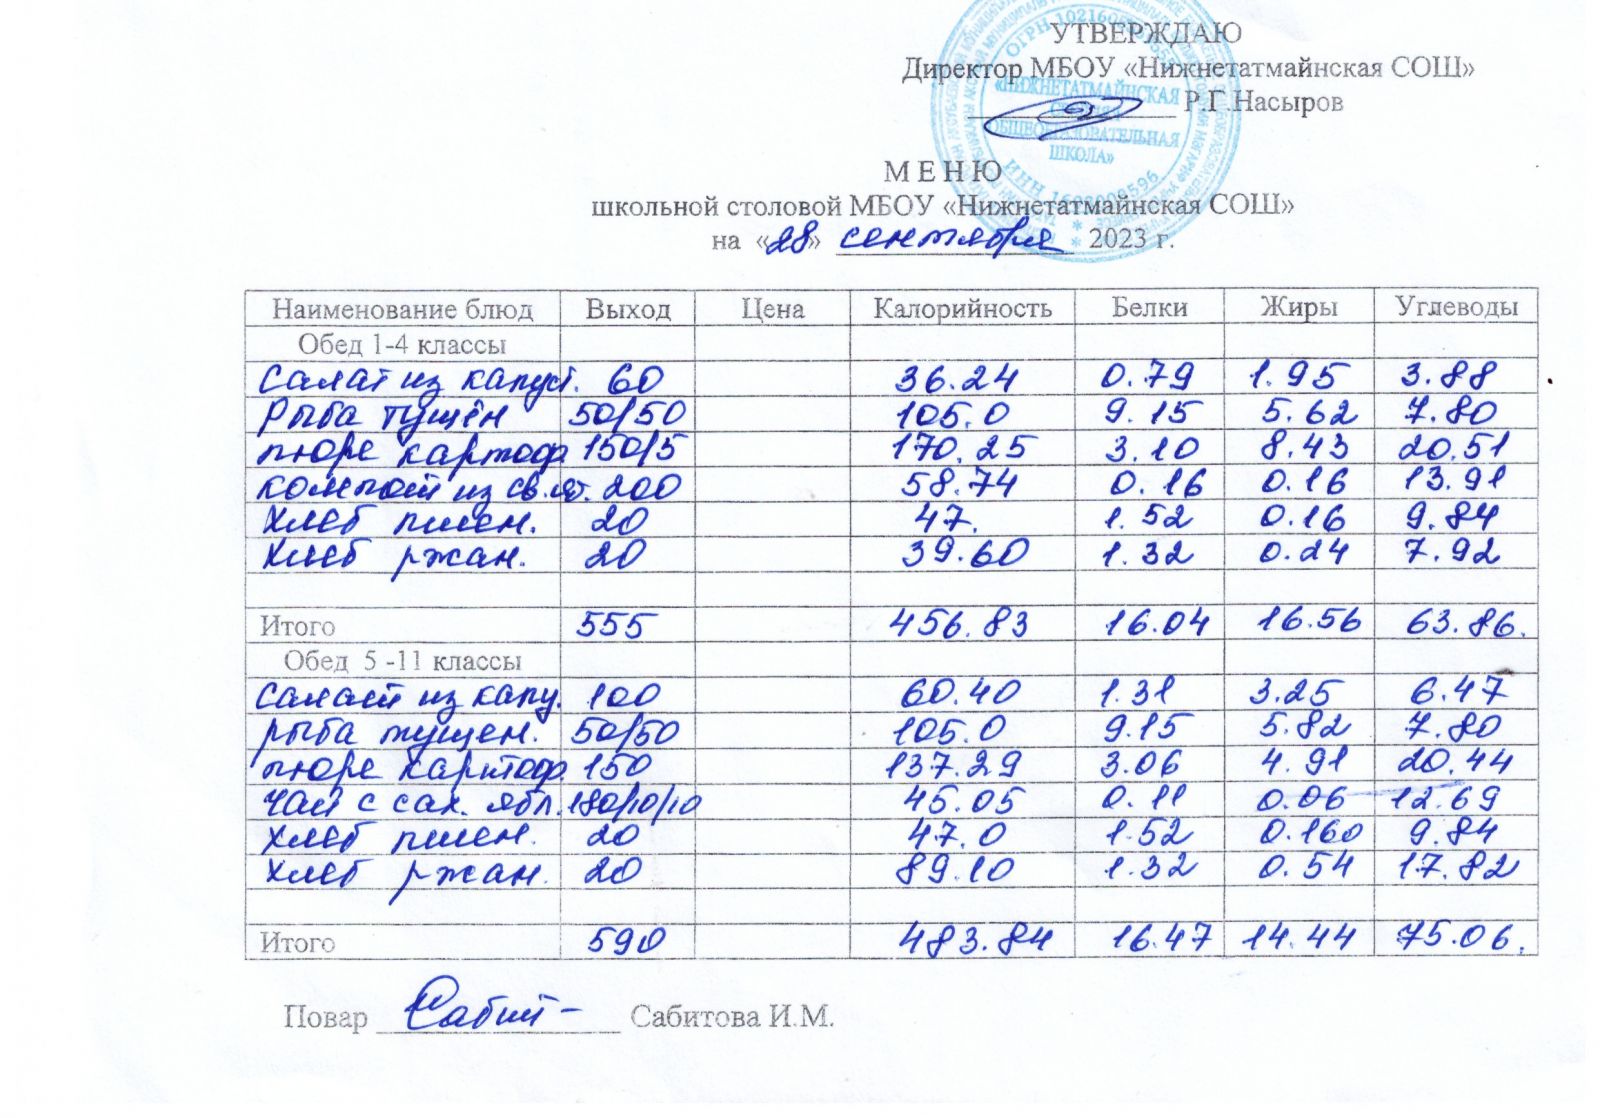 УТВЕРЖДАЮ
Директор МБОУ «Нижнетатмайнская СОШ»
Р.Г.Насыров
«НИЖНЕТАТМАЙНСКАЯ
ОБЩЕОБРАЗОВАТЕЛЬНАЯ
ШКОЛА»
М Е Н Ю
школьной столовой МБОУ «Нижнетатмайнская СОШ»
на «28» сентября 2023 г.
Наименование блюд Выход Цена Калорийность Белки Жиры Углеводы
Обед 1-4 классы
Салат из капуст. 60 36.24 0.79 1.95 3.88
Рыба тушён 50/50 105.0 9.15 5.62 7.80
пюре картоф. 150/5 170.25 3.10 8.43 20.51
компот из св.яб. 200 58.74 0.16 0.16 13.91
Хлеб пшен. 20 47. 1.52 0.16 9.84
Хлеб ржан. 20 39.60 1.32 0.24 7.92
Итого 555 456.83 16.04 16.56 63.86.
Обед 5 -11 классы
Салат из капу. 100 60.40 1.31 3.25 6.47
рыба тушен. 50/50 105.0 9.15 5.82 7.80
пюре картоф. 150 137.29 3.06 4.91 20.44
Чай с сах. ябл. 180/10/10 45.05 0.11 0.06 12.69
Хлеб пшен. 20 47.0 1.52 0.160 9.84
Хлеб ржан. 20 89.10 1.32 0.54 17.82
Итого 590 483.84 16.47 14.44 75.06.
Повар Сабит- Сабитова И.М.